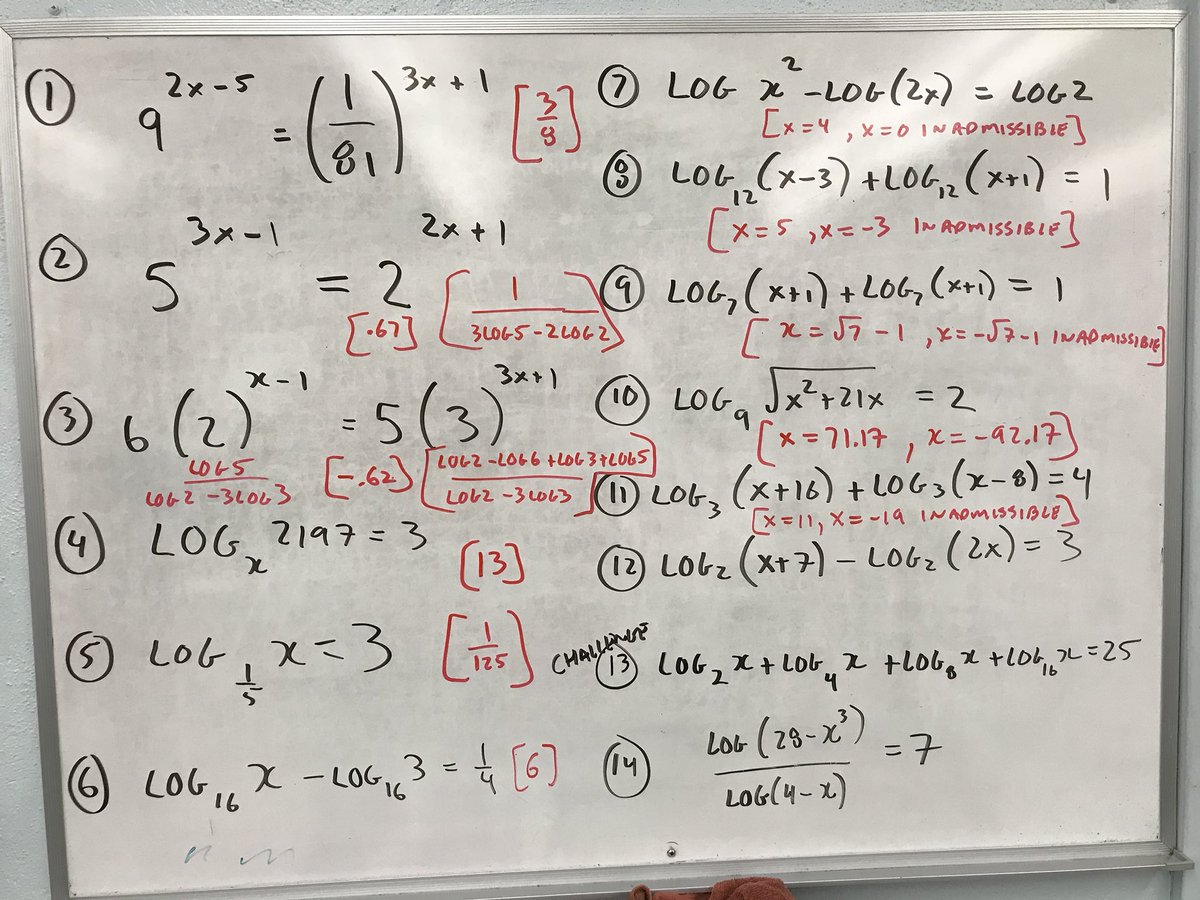 ① 9^(2x-5) = (1/81)^(3x+1) [3/8]
② 5^(3x-1) = 2^(2x+1) [.67] [1/(3LOG5-2LOG2)]
③ 6(2)^(x-1) = 5(3)^(3x+1)
LOG5/(LOG2-3LOG3) [-.62] [(LOG2-LOG6+LOG3+LOG5)/(LOG2-3LOG3)]
④ LOG_x 2197 = 3 [13]
⑤ LOG_(1/5) x = 3 [1/125]
⑥ LOG_16 x - LOG_16 3 = 1/4 [6]
⑦ LOG x^2 - LOG(2x) = LOG2
[x=4, x=0 INADMISSIBLE]
⑧ LOG_12 (x-3) + LOG_12 (x+1) = 1
[x=5, x=-3 INADMISSIBLE]
⑨ LOG_7 (x+1) + LOG_7 (x+1) = 1
[x=√7-1, x=-√7-1 INADMISSIBLE]
⑩ LOG_9 √(x^2+21x) = 2
[x=71.17, x=-92.17]
⑪ LOG_3 (x+16) + LOG_3 (x-8) = 4
[x=11, x=-19 INADMISSIBLE]
⑫ LOG_2 (x+7) - LOG_2 (2x) = 3
CHALLENGE
⑬ LOG_2 x + LOG_4 x + LOG_8 x + LOG_16 x = 25
⑭ LOG(28-x^3)/LOG(4-x) = 7